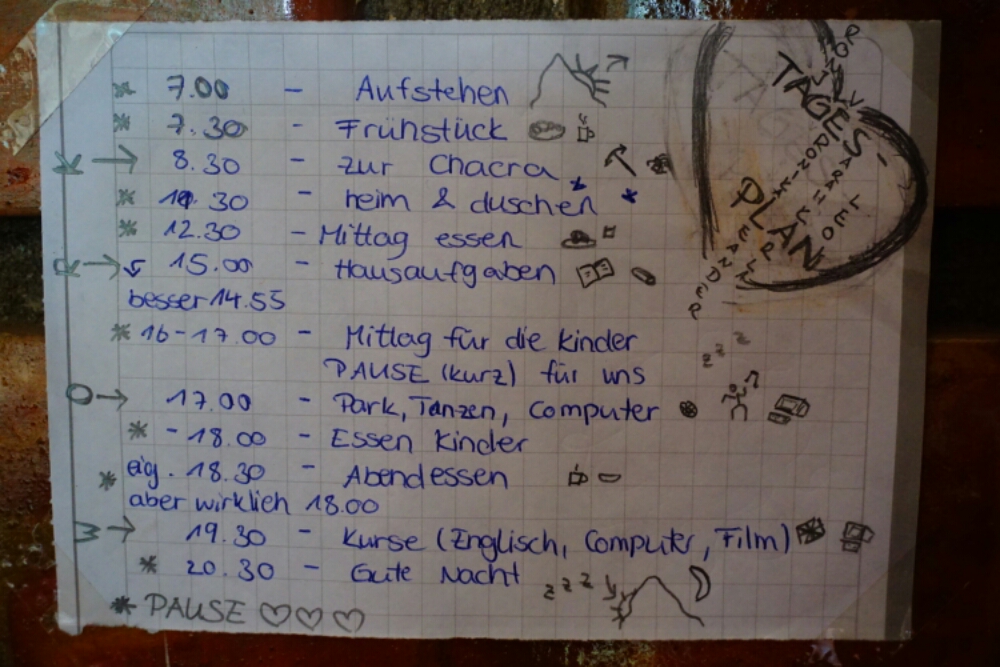 TAGES-
PLAN
* 7.00 - Aufstehen
* 7.30 - Frühstück
K → 8.30 - zur Chacra
* 30 - heim & duschen
* 12.30 - Mittag essen
R → 15.00 - Hausaufgaben
besser 14.55
* 16-17.00 - Mittag für die Kinder
PAUSE (kurz) für uns
zzz
O → 17.00 - Park, Tanzen, Computer
* - 18.00 - Essen Kinder
* eig. 18.30 - Abendessen
aber wirklich 18.00
W → 19.30 - Kurse (Englisch, Computer, Film)
* 20.30 - Gute Nacht zzz
* PAUSE ♡♡♡